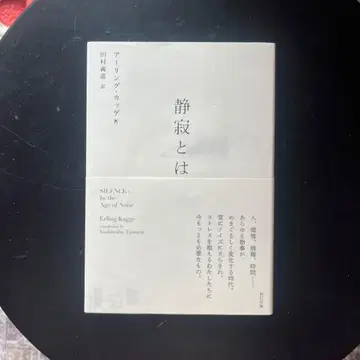 アーリング・カッゲ 著
田村義進 訳
静寂とは
SILENCE:
In the
Age of Noise
Erling Kagge
translation by
Yoshinobu Tamura
人、環境、情報、時間——
あらゆる物事が
めまぐるしく変化する時代。
常にノイズにさらされ、
ストレスを抱えるわたしたちに
今もっとも必要なもの。
辰巳出版